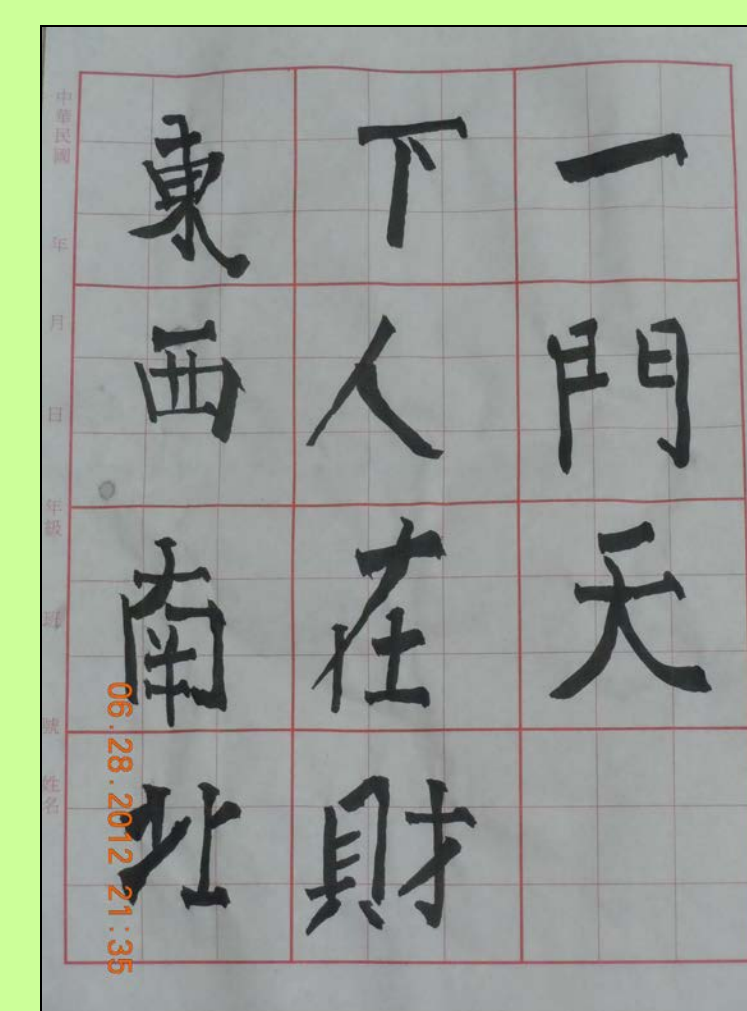 一門天
下人在財
東西南北
中華民國 年 月 日 年級 班 號 姓名
06.28.2012 21:35